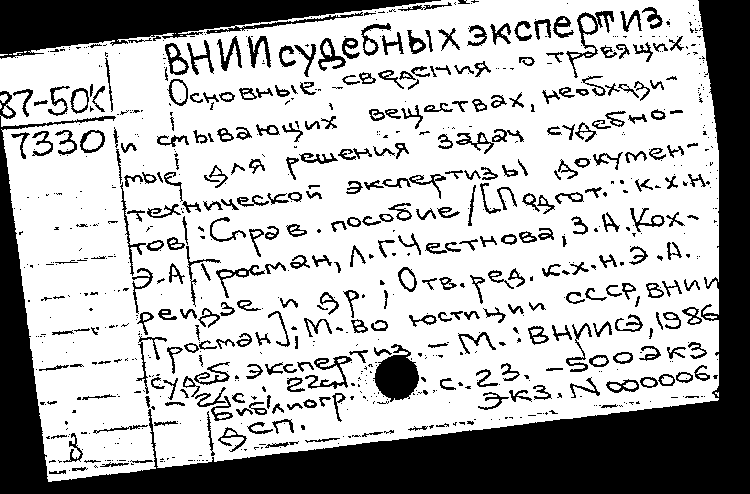 ВНИИ судебных экспертиз.
87-50К
7330
Основные сведения о травящих
и смывающих веществах, необходи-
мые для решения задач судебно-
технической экспертизы докумен-
тов: Справ. пособие / [Подгот.: к.х.н.
Э.А. Тросман, Л.Г. Честнова, З.А. Кох-
реидзе и др.; Отв. ред. к.х.н. Э.А.
Тросман]; М-во юстиции СССР, ВНИИ
судеб. экспертиз. – М.: ВНИИСЭ, 1986
– 24с.; 22см.
Библиогр.: с. 23. – 500 экз.
ДСП. Экз. N 000006.
8